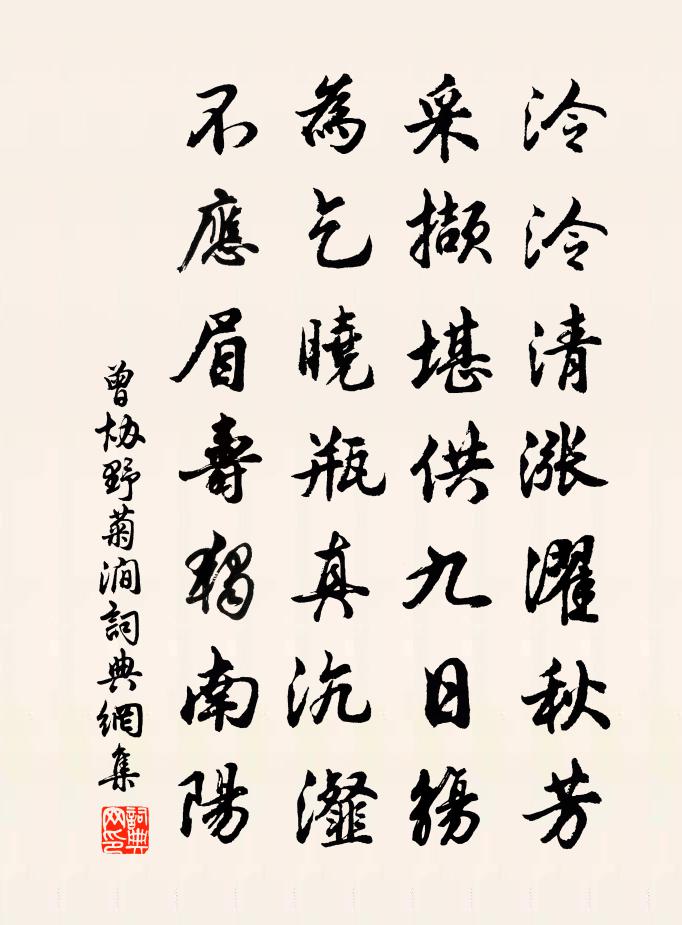 泠泠清漲濯秋芳
采擷堪供九日觴
為乞曉瓶真沆瀣
不應眉壽獨南陽
曾協野菊澗詞典網集
詞典網印